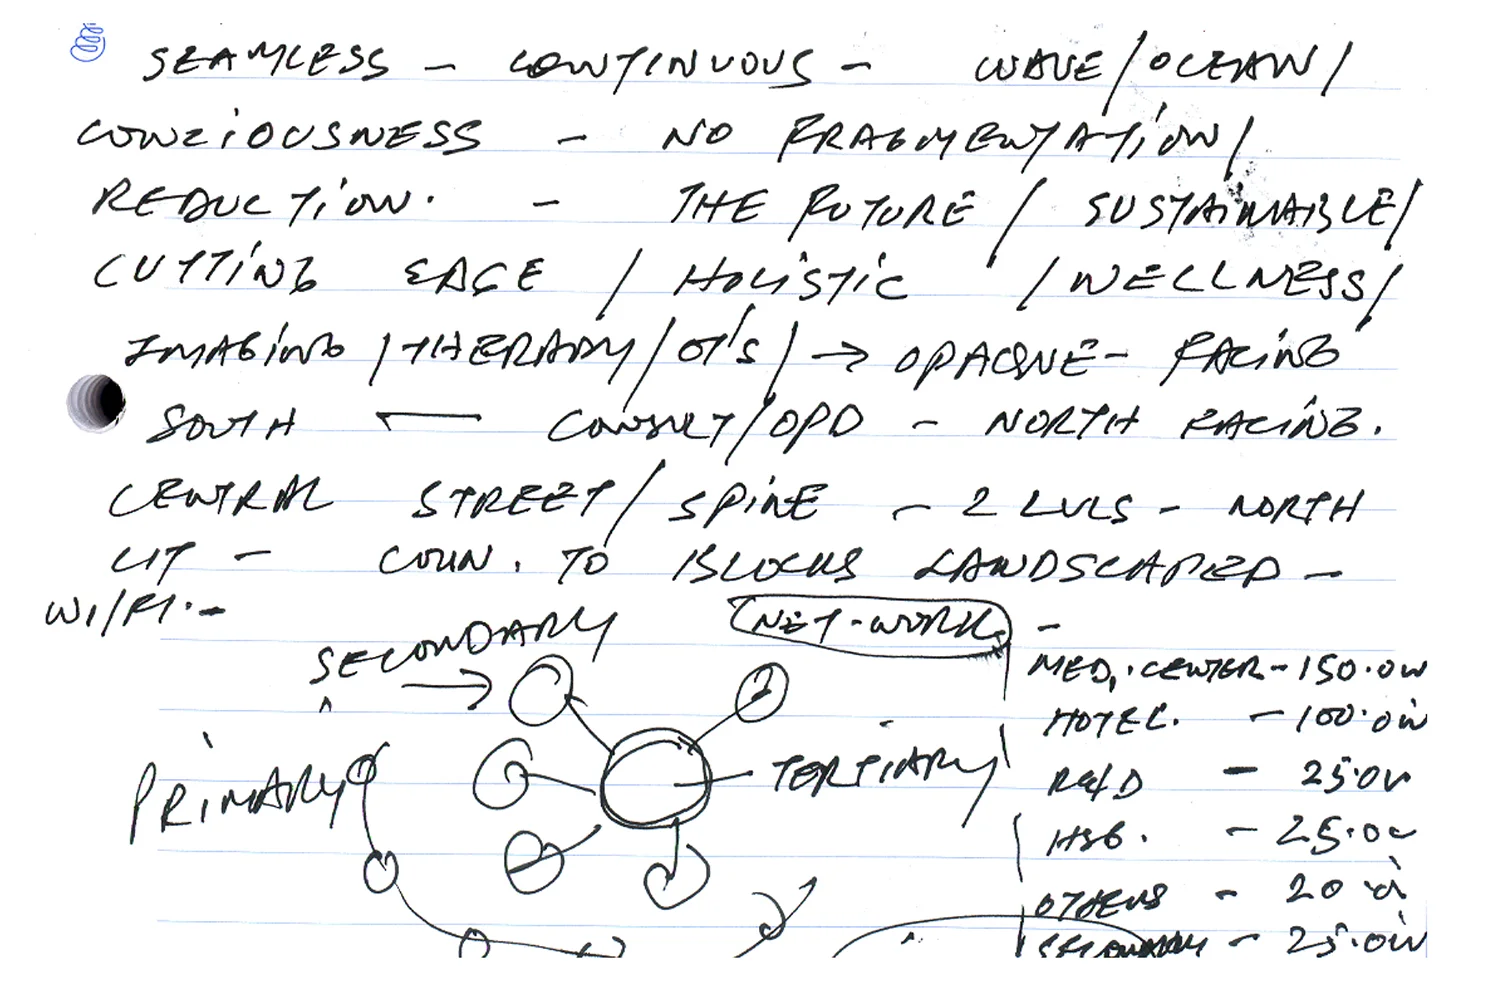 SEAMLESS - CONTINUOUS - WAVE/OCEAN/
CONZIOUSNESS - NO FRAGMENTATION/
REDUCTION. - THE FUTURE / SUSTAINABLE/
CUTTING EDGE / HOLISTIC / WELLNESS/
IMAGING / THERAPY / OT'S / → OPAQUE - FACING
SOUTH ← CONSULT/OPD - NORTH FACING.
CENTRAL STREET / SPINE - 2 LVLS - NORTH
LIT - TO BLOCKS LANDSCAPED -
WI/FI. -
NET-WORK -
SECONDARY →
MED. CENTER - 150.0
HOTEL. - 100.0
TERTIARY
R&D - 25.0
PRIMARY
- 25.0
OTHERS - 20
SECONDARY - 25.0